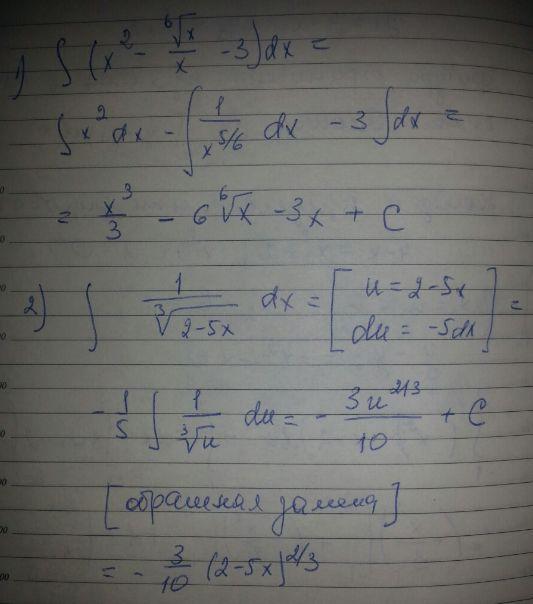 1) ∫ (x² - ⁶√x/x - 3) dx =
∫ x² dx - ∫ 1/x^(5/6) dx - 3 ∫ dx =
= x³/3 - 6 ⁶√x - 3x + C
2) ∫ 1/³√(2-5x) dx = [u = 2-5x
du = -5dx] =
- 1/5 ∫ 1/³√u du = - 3u^(2/3)/10 + C
[обратная замена]
= - 3/10 (2-5x)^(2/3)